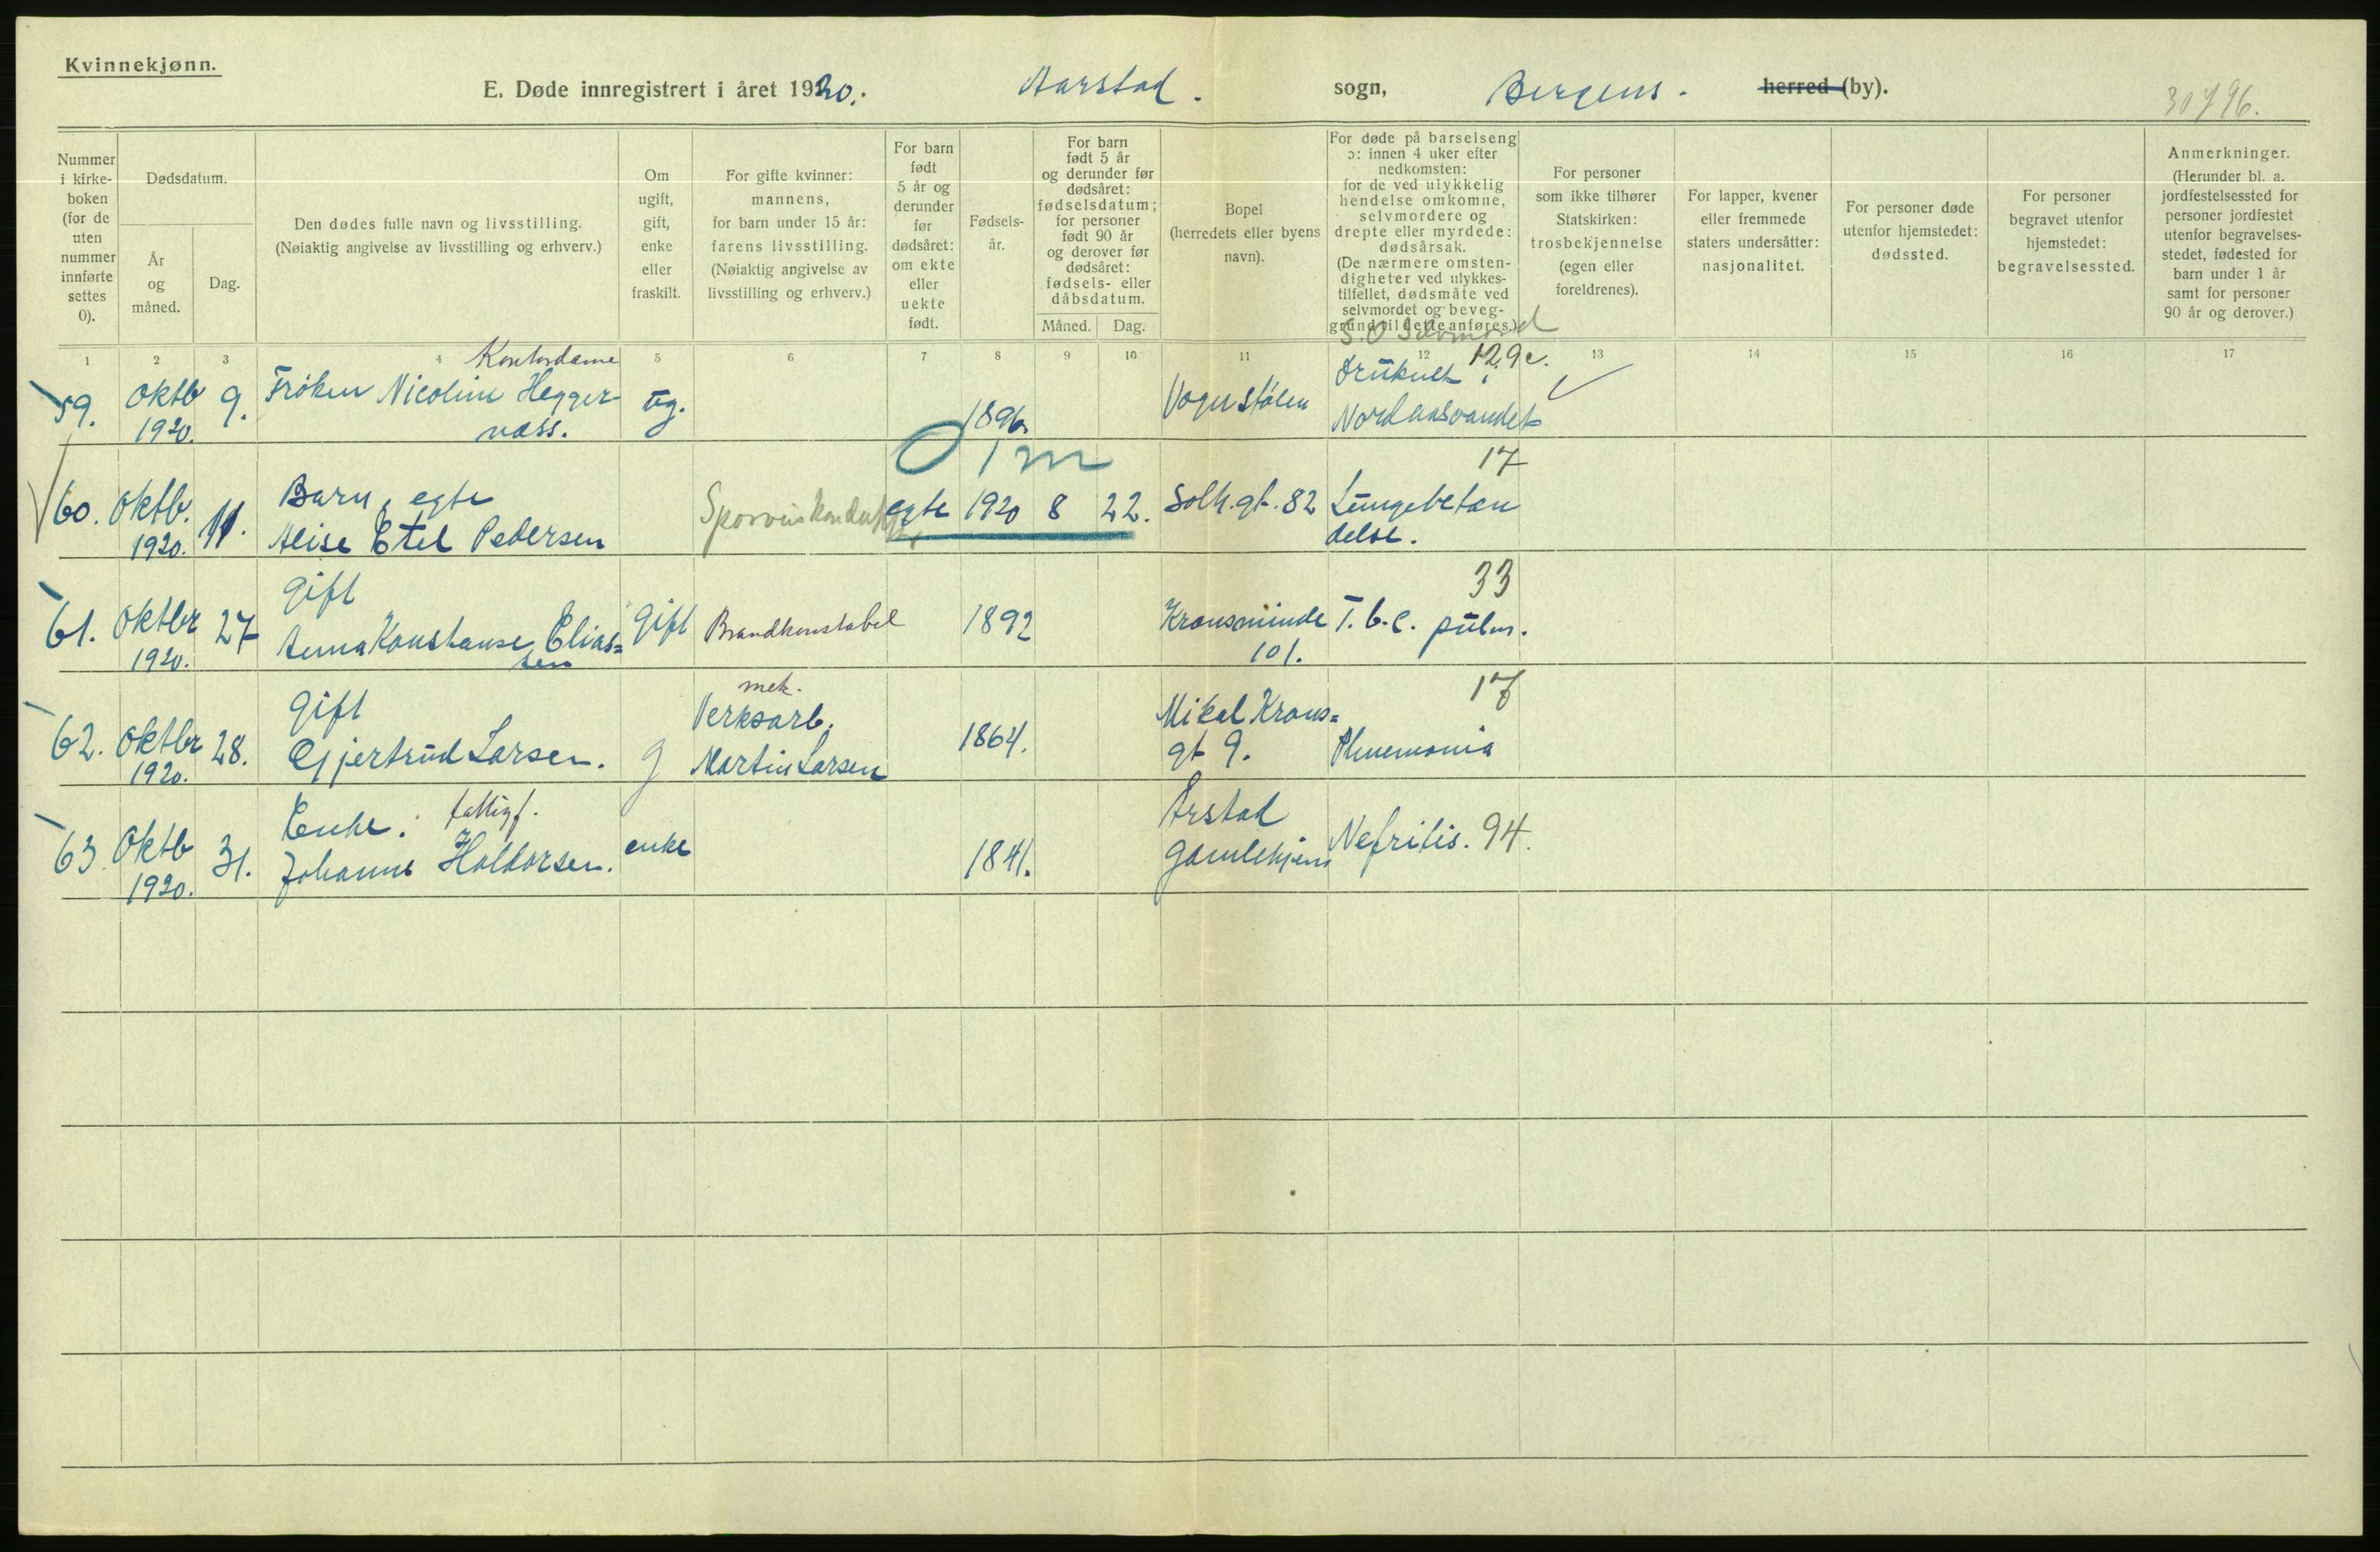 Kvinnekjønn.
E. Døde innregistrert i året 1920. Aarstad. sogn, Bergens. herred (by). 30796.
Nummer i kirkeboken (for de uten nummer innførte settes 0).
Dødsdatum.
År og måned.
Dag.
Den dødes fulle navn og livsstilling.
(Nøiaktig angivelse av livsstilling og erhverv.)
Om ugift, gift, enke eller fraskilt.
For gifte kvinner: mannens, for barn under 15 år: farens livsstilling.
(Nøiaktig angivelse av livsstilling og erhverv.)
For barn født 5 år og derunder før dødsåret: om ekte eller uekte født.
Fødselsår.
For barn født 5 år og derunder før dødsåret: fødselsdatum; for personer født 90 år og derover før dødsåret: fødsels- eller dåbsdatum.
Måned.
Dag.
Bopel
(herredets eller byens navn).
For døde på barselseng ɔ: innen 4 uker efter nedkomsten: for de ved ulykkelig hendelse omkomne, selvmordere og drepte eller myrdede: dødsårsak.
(De nærmere omstendigheter ved ulykkestilfellet, dødsmåte ved selvmordet og beveggrund til dette anføres.)
For personer som ikke tilhører Statskirken: trosbekjennelse (egen eller foreldrenes).
For lapper, kvener eller fremmede staters undersåtter: nasjonalitet.
For personer døde utenfor hjemstedet: dødssted.
For personer begravet utenfor hjemstedet: begravelsessted.
Anmerkninger.
(Herunder bl. a. jordfestelsessted for personer jordfestet utenfor begravelsesstedet, fødested for barn under 1 år samt for personer 90 år og derover.)
1 2 3 4 5 6 7 8 9 10 11 12 13 14 15 16 17
S.O Selvmord
Kontordame
59. Oktb 9. Frøken Nicoline Hegger- ug. 1896. Vognstølen Druknet 129c.
1920. næss. Nordaasvandet
0 1 m
17
60. Oktb. 11. Barn, egte egte 1920 8 22. Solh.gt. 82 Lungebetæn
1920. Alise Etel Pedersen delse.
33
61. Oktbr 27 Gift Gift Brandkonstabel 1892 Kronsminde T.b.c. pulm.
1920. Anna Konstanse Elias= 101.
sen
mek.
17
62. Oktbr 28. Gift g Verksarb. 1864. Mikal Krons=
1920. Gjertrud Larsen. Martin Larsen gt 9.
63 Oktb 31. Enke. fattigf. enke 1841. Årstad Nefritis. 94.
1920. Johanne Haldorsen. gamlehjem